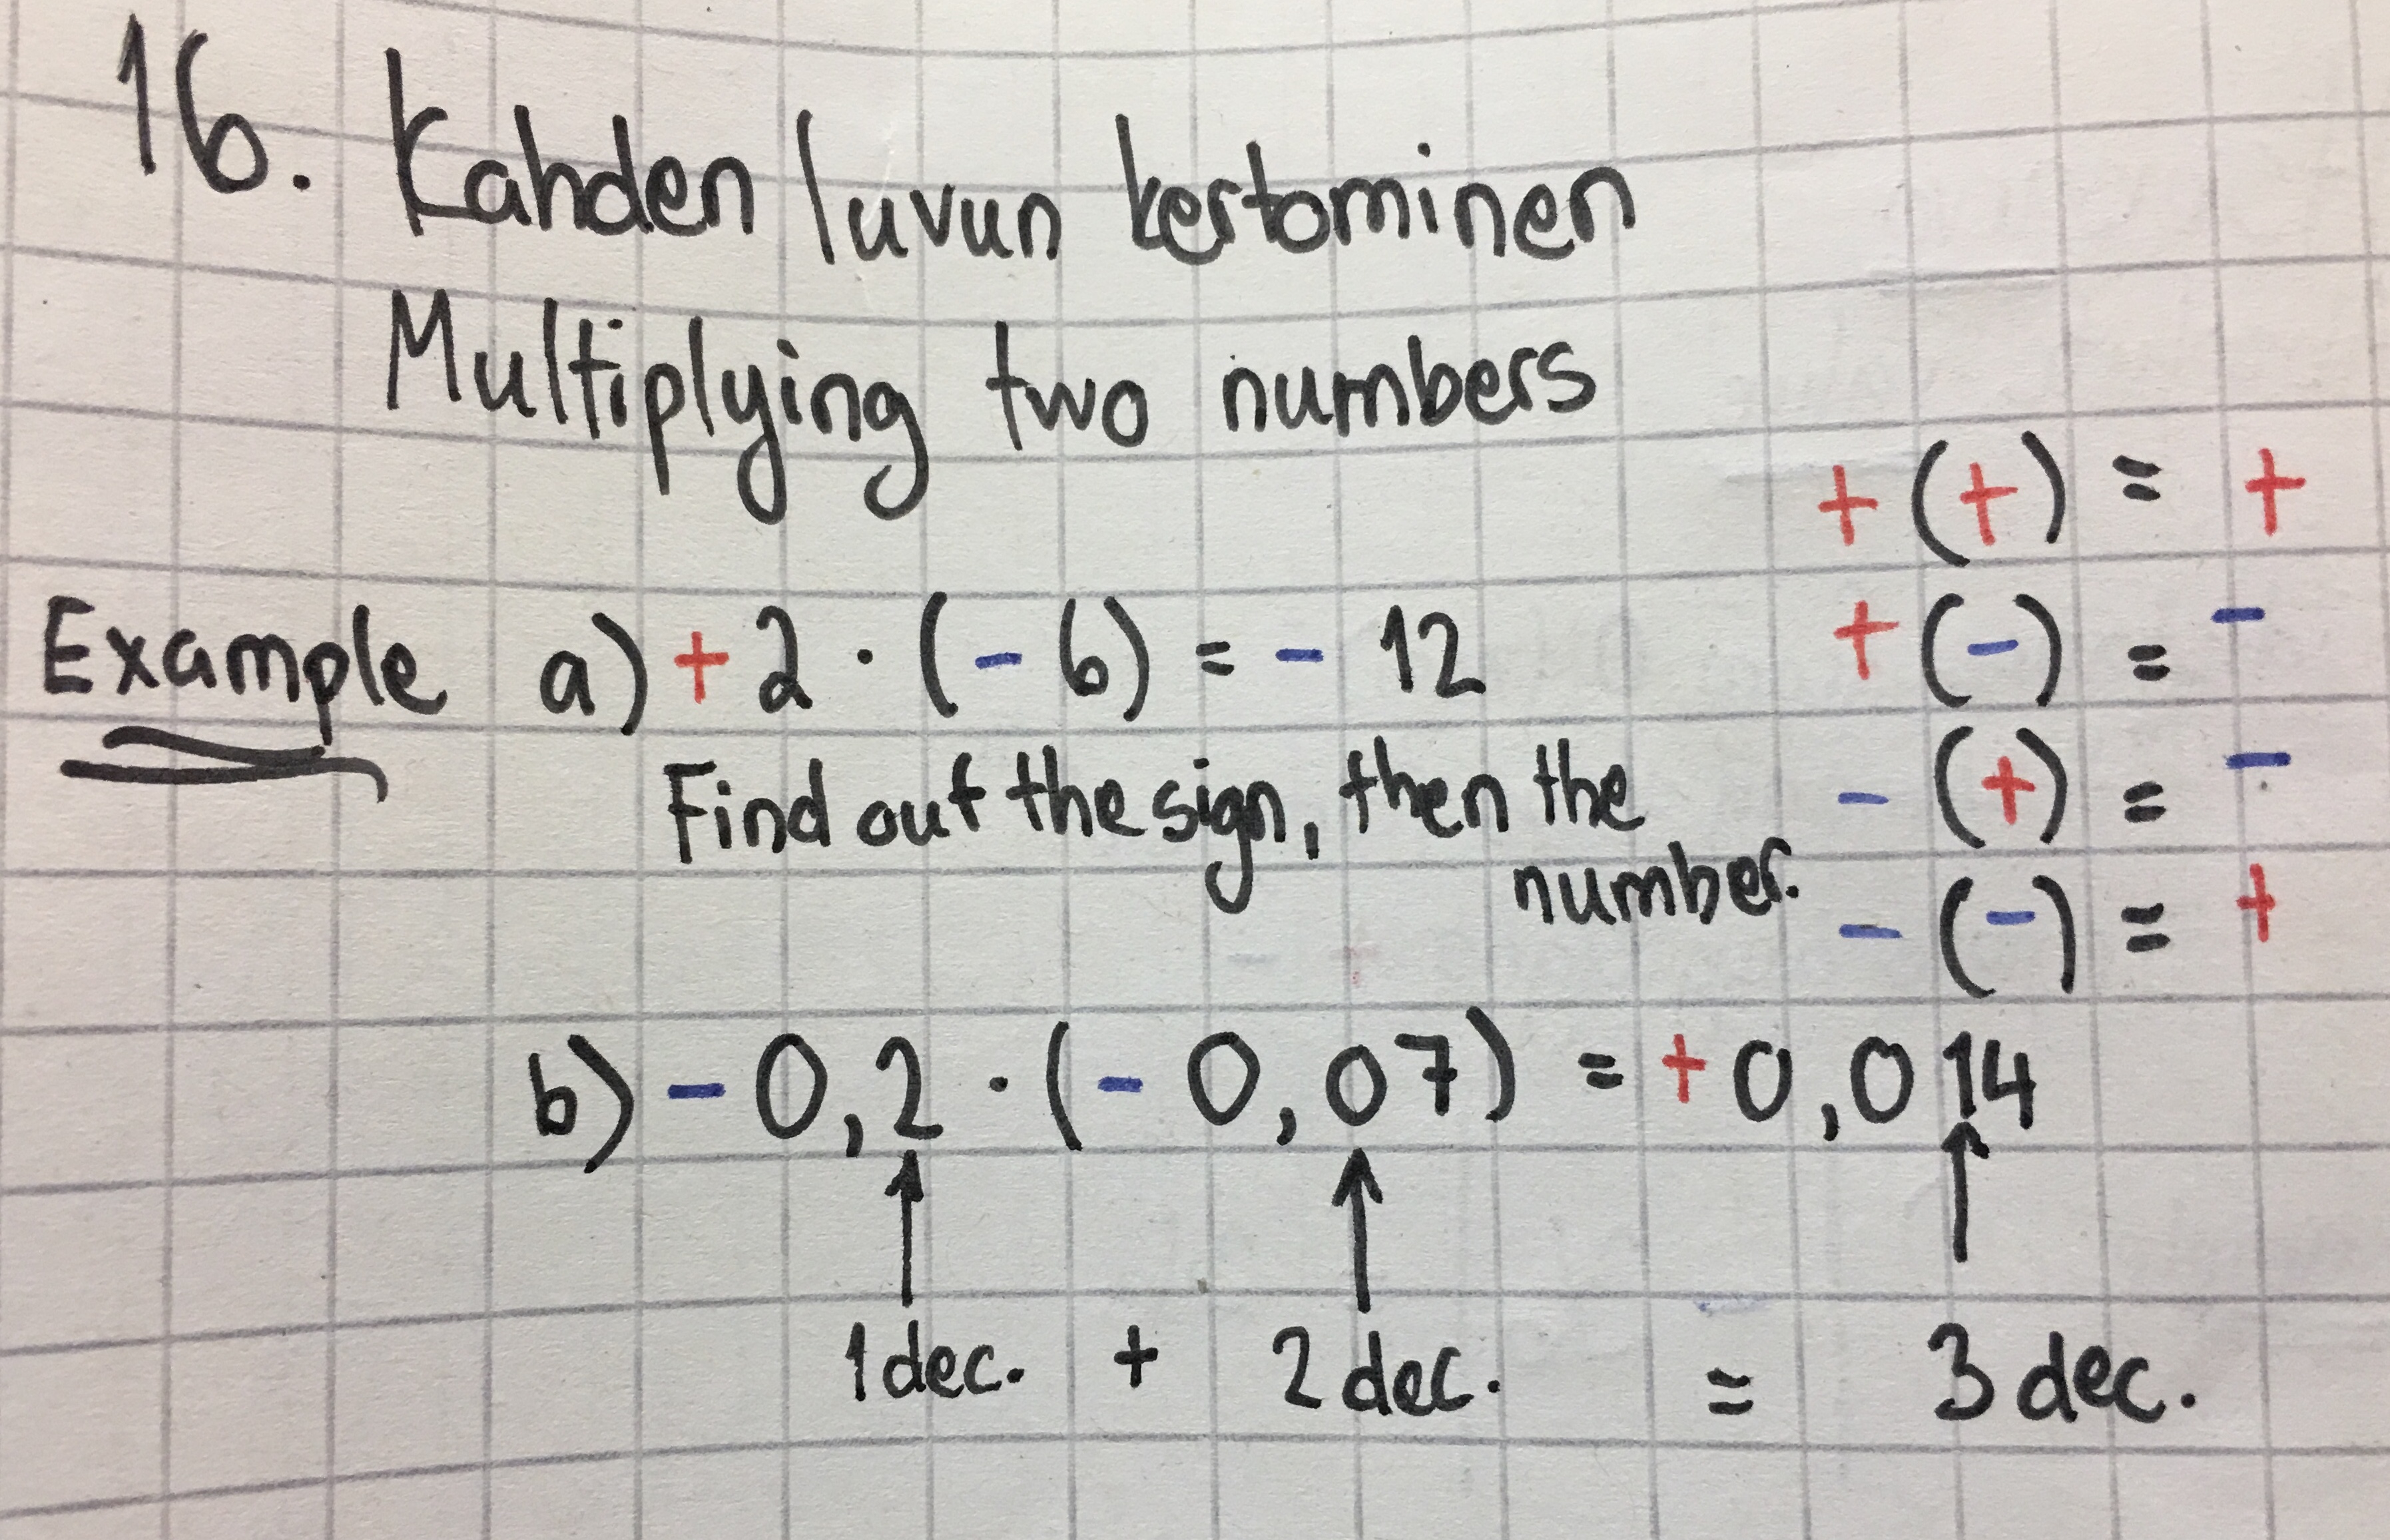 16. Kahden luvun kertominen
Multiplying two numbers
+ (+) = +
Example a) + 2 · (- 6) = - 12
+ (-) = -
Find out the sign, then the
number.
- (+) = -
- (-) = +
b) - 0,2 · (- 0,07) = + 0,014
1 dec. + 2 dec. = 3 dec.